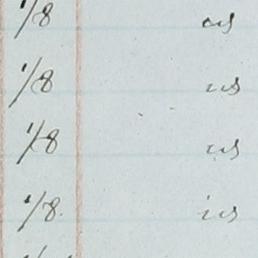 1/8 us
1/8 us
1/8 us
1/8 us